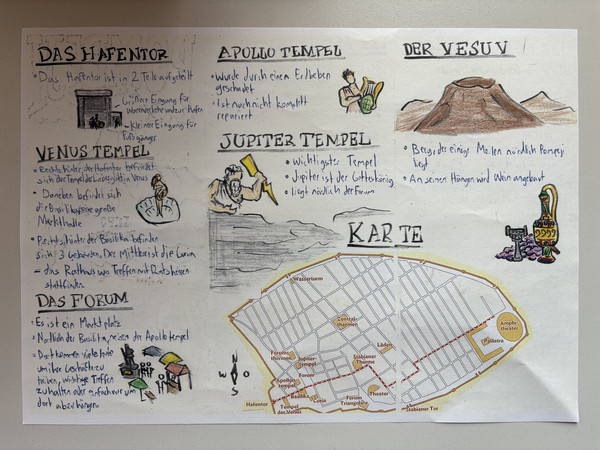 DAS HAFENTOR
• Das Hafentor ist in 2 Teile aufgeteilt
- Größere Eingang für
Warenverkehr und zur Hafen
- Kleiner Eingang für
Fußgänger
VENUS TEMPEL
• Rechts hinter der Hafentor befindet
sich der Tempel der Liebesgöttin Venus
• Daneben befindet sich
die Basilika, eine große
Markthalle
• Rechts hinter der Basilika befinden
sich 3 Gebäuden. Der Mittlere ist die Curia
- das Rathaus wo Treffen mit Ratsherren
stattfinden
DAS FORUM
• Es ist ein Marktplatz
• Nördlich der Basilika, neben der Apollotempel
• Dort kommen viele Leute
um ihre Geschäfte zu
treiben, wichtige Treffen
zu halten oder einfach nur um
dort abzuhängen
APOLLO TEMPEL
• Wurde durch einem Erdbeben
geschadet
• Ist noch nicht komplett
repariert
JUPITER TEMPEL
• Wichtigster Tempel
• Jupiter ist der Götterkönig
• liegt nördlich der Forum
DER VESUV
• Berg, der einige Meilen nördlich Pompeji
liegt
• An seinen Hängen wird Wein angebaut
KARTE
Wasserturm
Zentral-
thermen
Amphi-
theater
Palästra
Forums-
thermen
Jupiter-
tempel
Läden
Stabianer
Therme
Forum
Apollo-
tempel
Basilika
Curia
Theater
Forum
Triangulare
Hafentor
Tempel
der Venus
Stabianer Tor
N
W
O
S